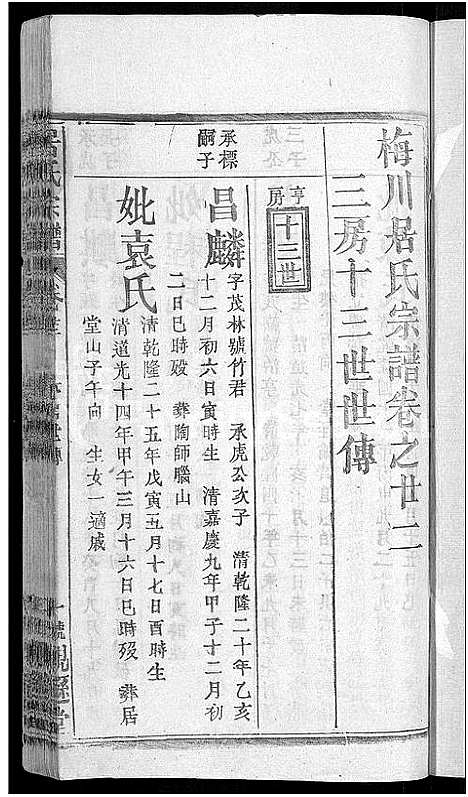 梅川居氏宗譜卷之廿二
三房十三世世傳
亨房
十三世
承標嗣子
昌麟
字茂林號竹君　承虎公次子　清乾隆二十年乙亥
十二月初六日寅時生　清嘉慶九年甲子十二月初
二日巳時歿　葬陶師腦山
妣袁氏
清乾隆二十五年戊寅五月十七日酉時生
清道光十四年甲午三月十六日巳時歿　葬居
堂山子午向　生女一適戚